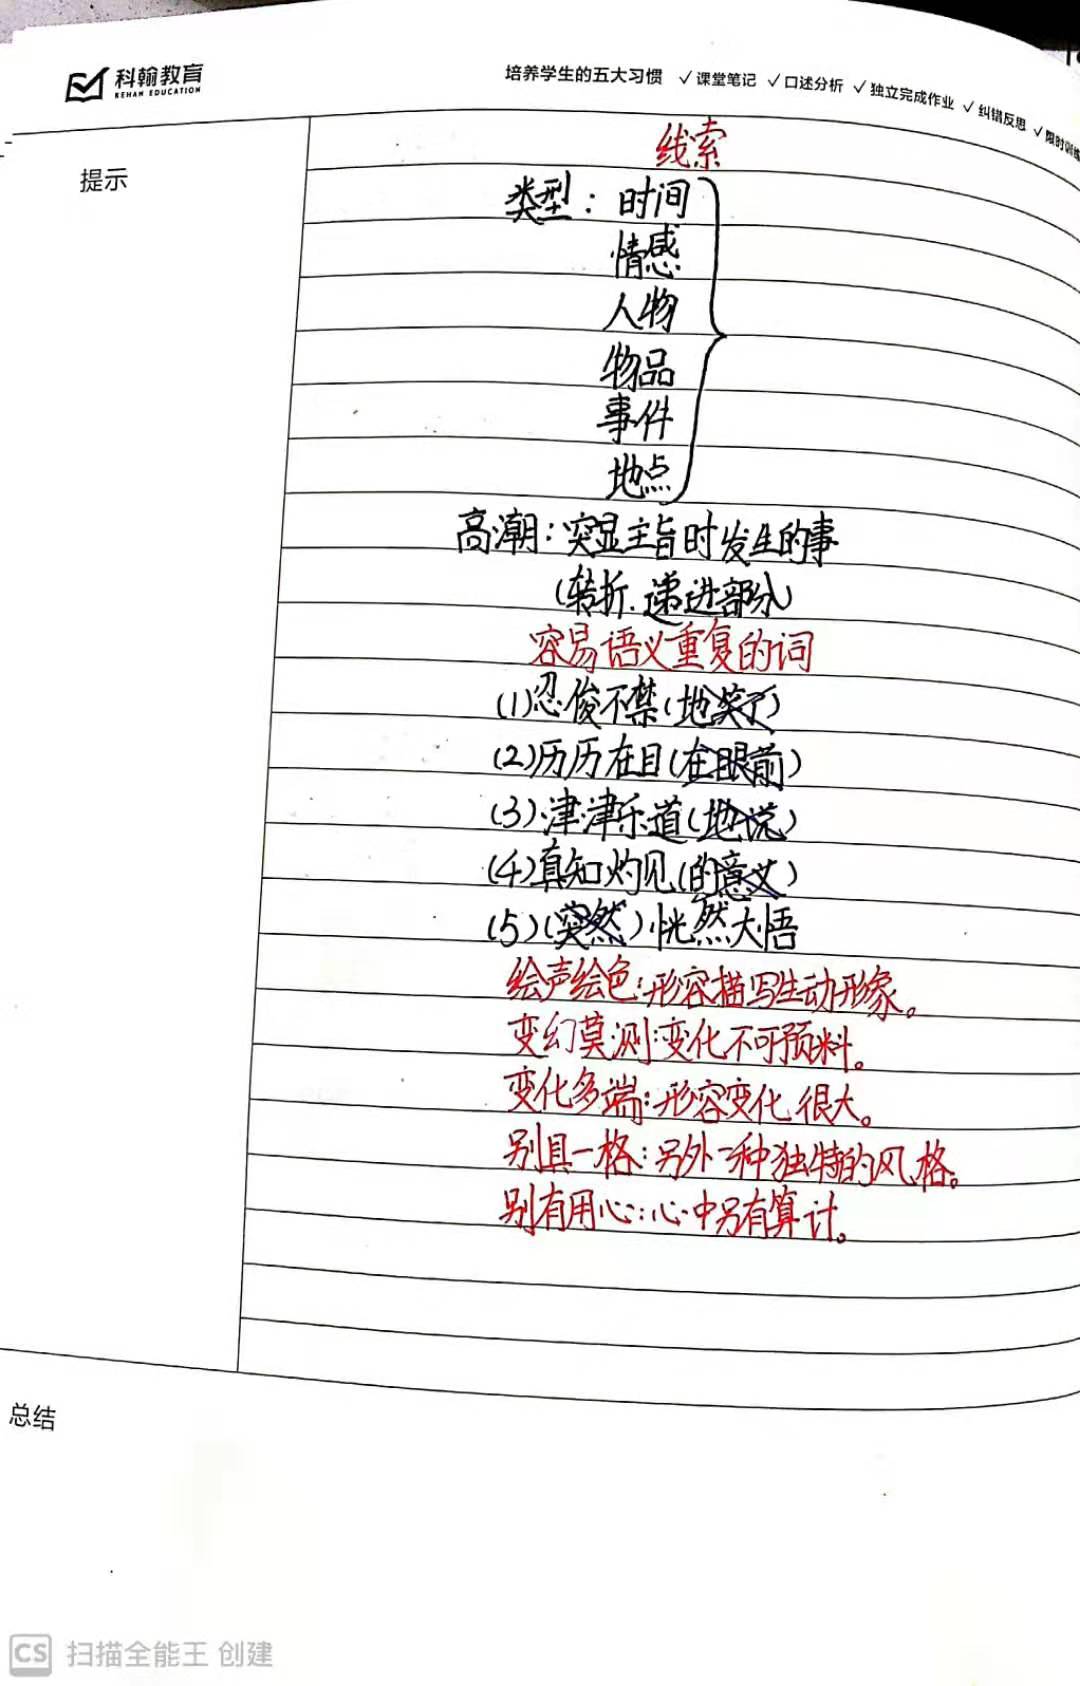 科翰教育
KEHAN EDUCATION
培养学生的五大习惯 ✓课堂笔记 ✓口述分析 ✓独立完成作业 ✓纠错反思 ✓限时训练
提示
线索
类型：时间
情感
人物
物品
事件
地点
高潮：突显主旨时发生的事
(转折.递进部分)
容易语义重复的词
(1)忍俊不禁(地笑了)
(2)历历在目(在眼前)
(3)津津乐道(地说)
(4)真知灼见(的意义)
(5)(突然)恍然大悟
绘声绘色：形容描写生动形象。
变幻莫测：变化不可预料。
变化多端：形容变化很大。
别具一格：另外一种独特的风格。
别有用心：心中另有算计。
总结
CS 扫描全能王 创建